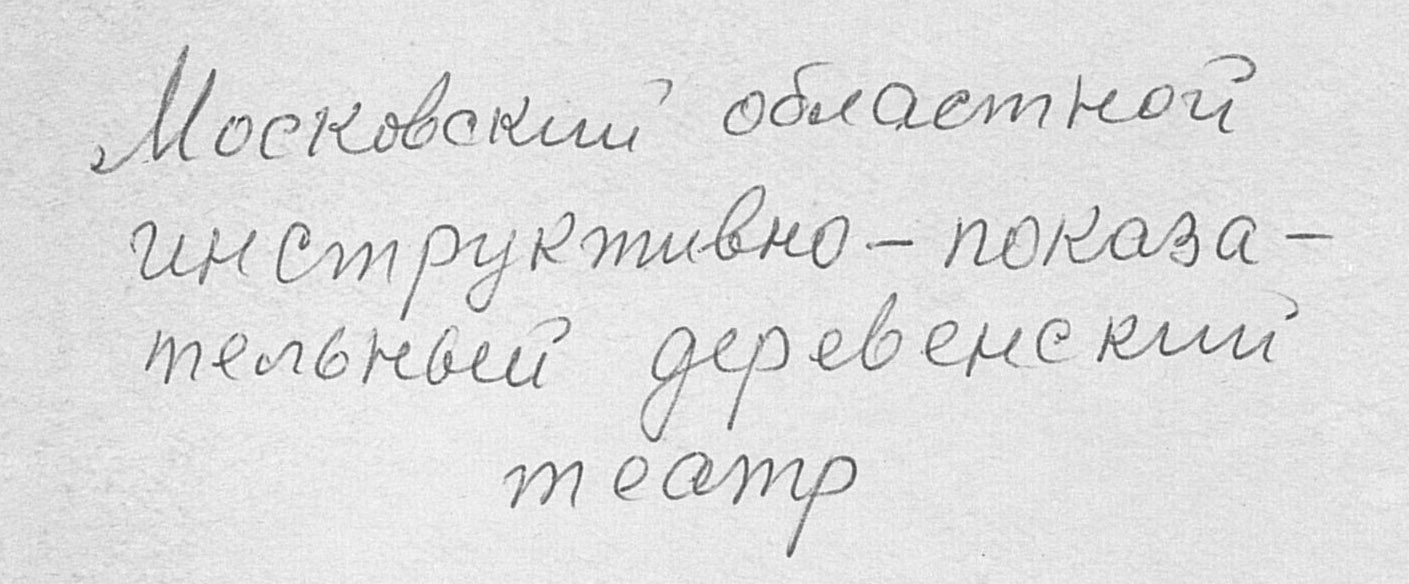 Московский областной
инструктивно-показа-
тельный деревенский
театр